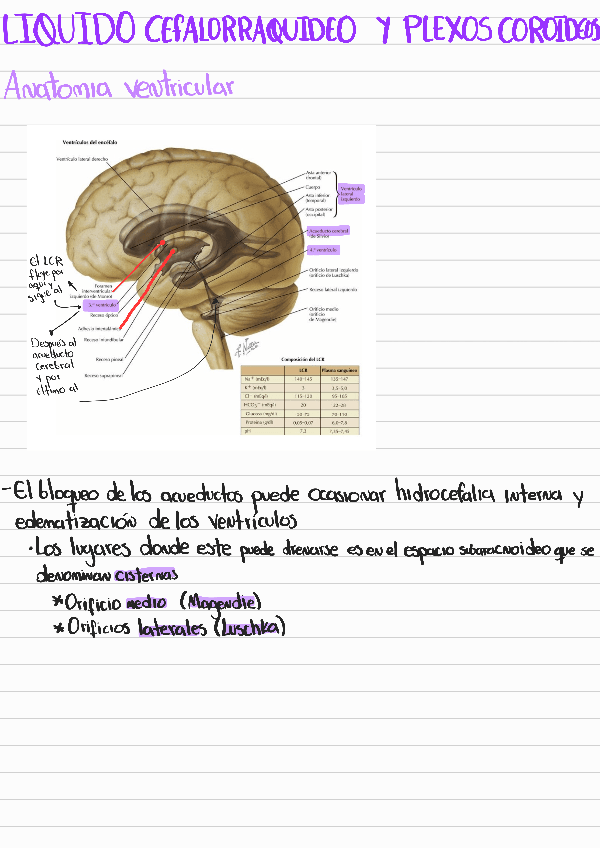 LIQUIDO CEFALORRAQUIDEO Y PLEXOS COROIDEOS
Anatomia ventricular
Ventrículos del encéfalo
Ventrículo lateral derecho
Asta anterior
(frontal)
Cuerpo
Asta inferior
(temporal)
Asta posterior
(occipital)
Ventrículo
lateral
izquierdo
Acueducto cerebral
de Silvio
4.º ventrículo
Orificio lateral izquierdo
(orificio de Luschka)
Receso lateral izquierdo
Orificio medio
(orificio
de Magendie)
El LCR
fluye por
aqui y
sigue al
Foramen
interventricular
izquierdo de Monro
3.er ventrículo
Receso óptico
Adhesio intertalámica
Receso infundibular
Receso pineal
Receso suprapineal
Después al
acueducto
cerebral
y por
último al
Composición del LCR
LCR Plasma sanguíneo
Na+ (mEq/l) 140-145 135-147
K+ (mEq/l) 3 3,5-5,0
Cl- (mEq/l) 115-120 95-105
HCO3- (mEq/l) 20 22-28
Glucosa (mg/dl) 50-75 70-110
Proteína (g/dl) 0,05-0,07 6,0-7,8
pH 7,3 7,35-7,45
- El bloqueo de los acueductos puede ocasionar hidrocefalia interna y
edematización de los ventrículos
· Los lugares donde este puede drenarse es en el espacio subaracnoideo que se
denominan cisternas
* Orificio medio (Magendie)
* Orificios laterales (Luschka)